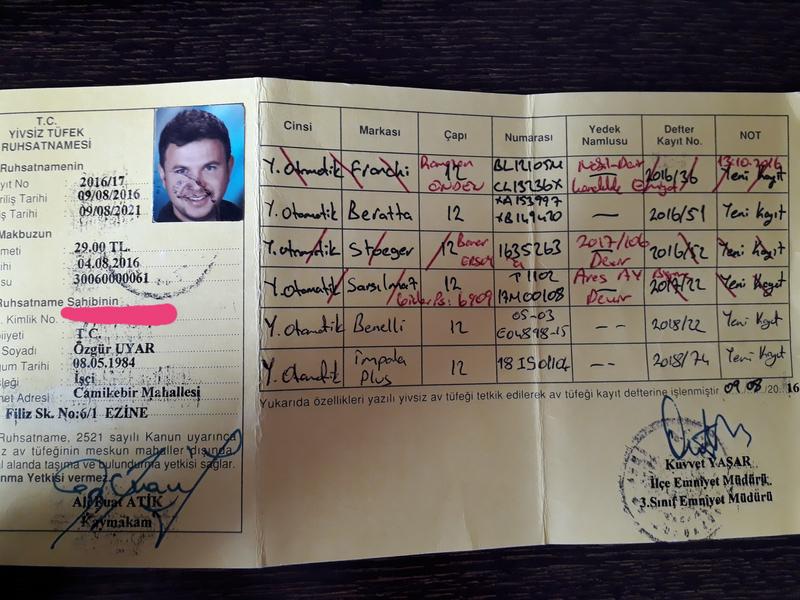 T.C.
YİVSİZ TÜFEK
RUHSATNAMESİ
Ruhsatnamenin
ayıt No 2016/17
riliş Tarihi 09/08/2016
iş Tarihi 09/08/2021
Makbuzun
meti 29.00 TL.
ihi 04.08.2016
su 30060000061
Ruhsatname Sahibinin
. Kimlik No.
biiyeti T.C.
Soyadı Özgür UYAR
um Tarihi 08.05.1984
sleği İşçi
met Adresi Camikebir Mahallesi
Filiz Sk. No:6/1 EZİNE
Ruhsatname, 2521 sayılı Kanun uyarınca
z av tüfeğinin meskun mahaller dışında
al alanda taşıma ve bulundurma yetkisi sağlar.
nma Yetkisi vermez.
Ali Fuat ATİK
Kaymakam
Cinsi Markası Çapı Numarası Yedek Namlusu Defter Kayıt No. NOT
Y. Otomatik Franchi 12 2016/36 13.10.2016 Yeni Kayıt
Y. Otomatik Beratta 12 XA153997 — 2016/51 Yeni Kayıt
Y. Otomatik Stoeger 12 1635263 2017/106 Devir 2016/52 Yeni Kayıt
Y. Otomatik Sarsılmaz 12 T1102 17M00108 Devir 2017/22 Yeni Kayıt
Y. Otomatik Benelli 12 05-03 E04898-15 -- 2018/22 Yeni Kayıt
Y. Otomatik İmpala Plus 12 -- 2018/74 Yeni Kayıt
Yukarıda özellikleri yazılı yivsiz av tüfeği tetkik edilerek av tüfeği kayıt defterine işlenmiştir 09/08/2016
Kuvvet YAŞAR
İlçe Emniyet Müdürü
3.Sınıf Emniyet Müdürü